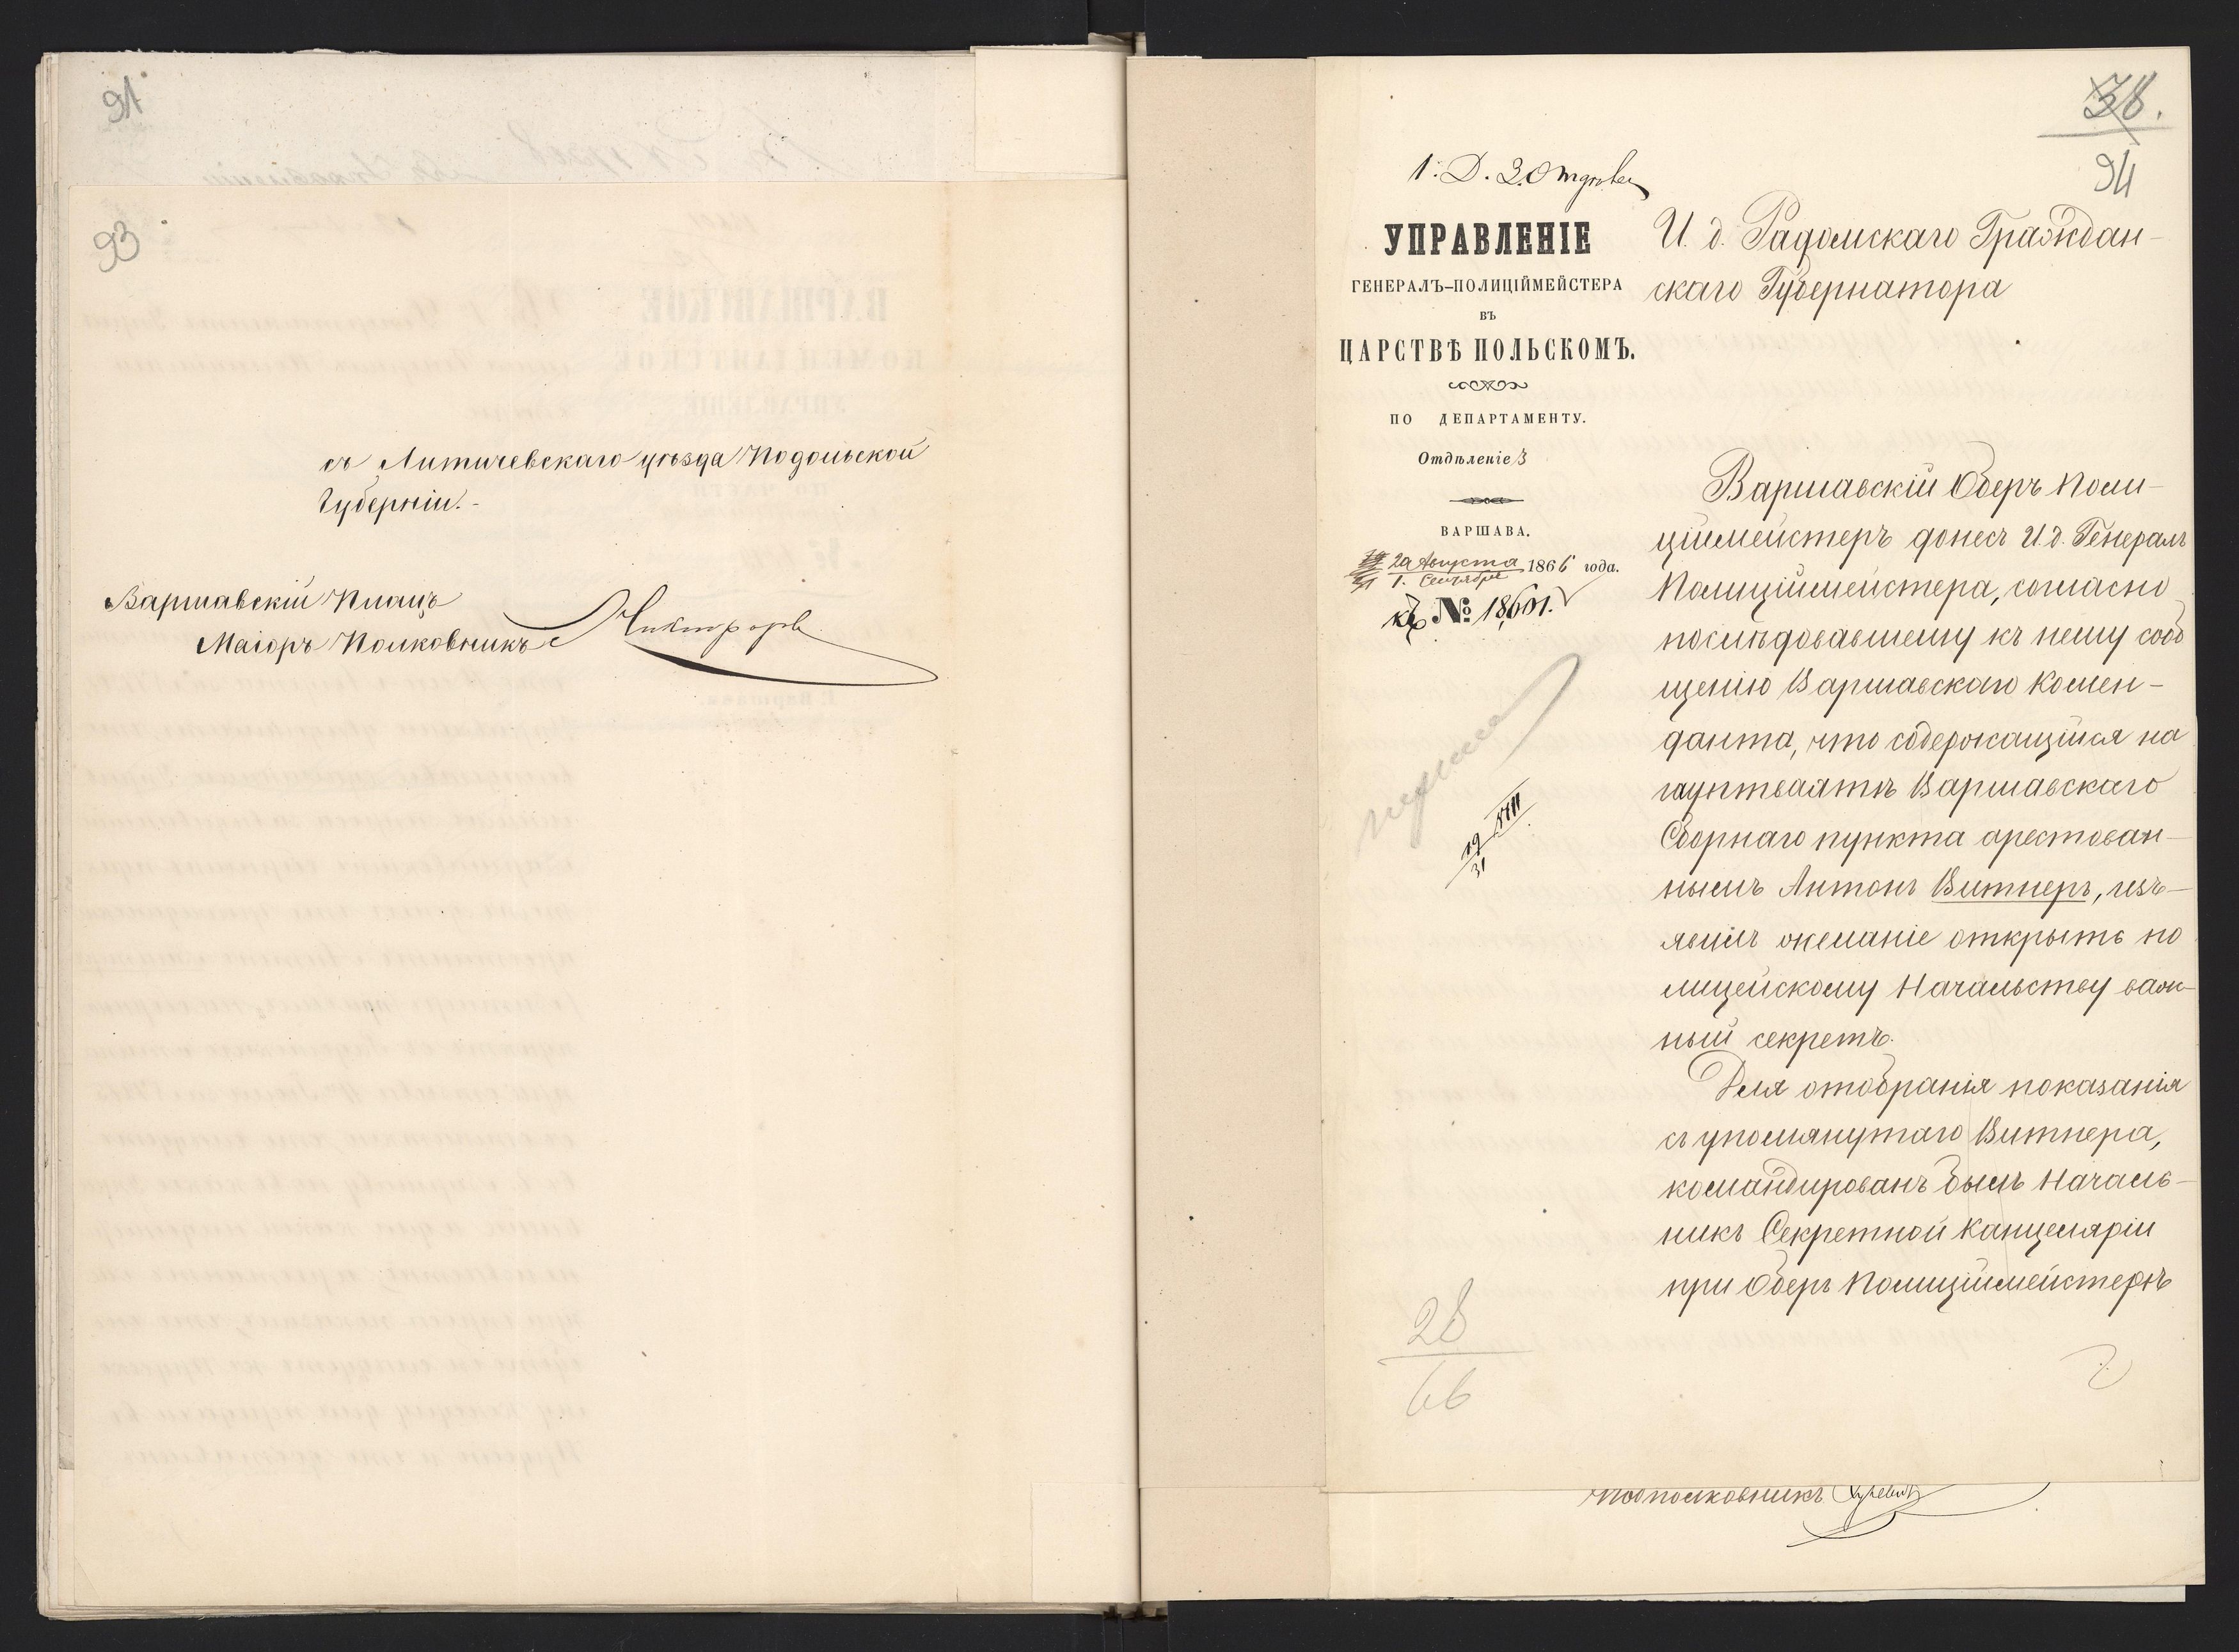 91
93
съ Литичевскаго уѣзда Подольской
Губерніи.-
Варшавскій Плацъ
Маіоръ Полковникъ Никифоровъ
38.
94
1. Д. 3. Отдѣлен
УПРАВЛЕНІЕ
ГЕНЕРАЛЪ-ПОЛИЦІЙМЕЙСТЕРА
ВЪ
ЦАРСТВѢ ПОЛЬСКОМЪ.
ПО ДЕПАРТАМЕНТУ.
Отдѣленіе 3
ВАРШАВА.
20 Августа 1866 года.
1. Сентября
къ № 18,601.
19/31 VIII
28
66
И. д. Радомскаго Граждан-
скаго Губернатора
Варшавскій Оберъ Поли-
ціймейстеръ донесъ И. д. Генералъ
Полиціймейстера, согласно
послѣдовавшему къ нему сооб
щенію Варшавскаго Комен-
данта, что содержащійся на
гауптвахтѣ Варшавскаго
Сборнаго пункта арестован-
нымъ Антонъ Витнеръ, изъ-
явилъ желаніе открыть по
лицейскому Начальству важ-
ный секретъ.
Для отобранія показанія
съ упомянутаго Витнера,
командированъ былъ Началь-
никъ Секретной Канцеляріи
при Оберъ Полиціймейстерѣ
Подполковникъ